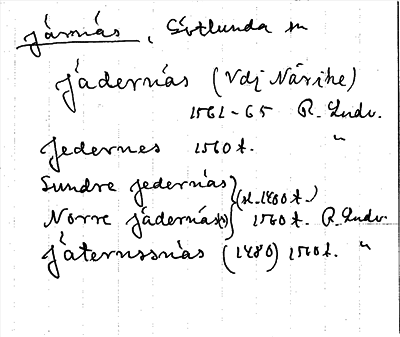 Järnäs, Götlunda sn
Jädernäs (Vdj Närike)
1561-65 R. Lndv.
Jedernes 1560 t. "
Sundre Jedernäs
Norre Jädernäs(s) (sl. 1400 t.) 1560 t. R. Lndv.
Jäternssnäs (1480) 1560 t. "